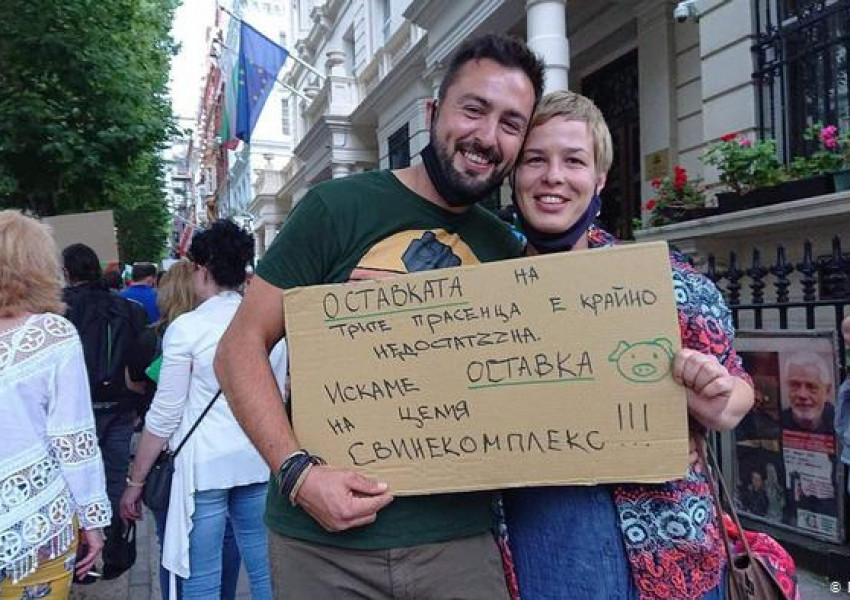 ОСТАВКАТА НА
ТРИТЕ ПРАСЕНЦА Е КРАЙНО
НЕДОСТАТZZНА.
ИСКАМЕ ОСТАВКА
НА ЦЕЛИЯ
СВИНЕКОМПЛЕКС !!!
©